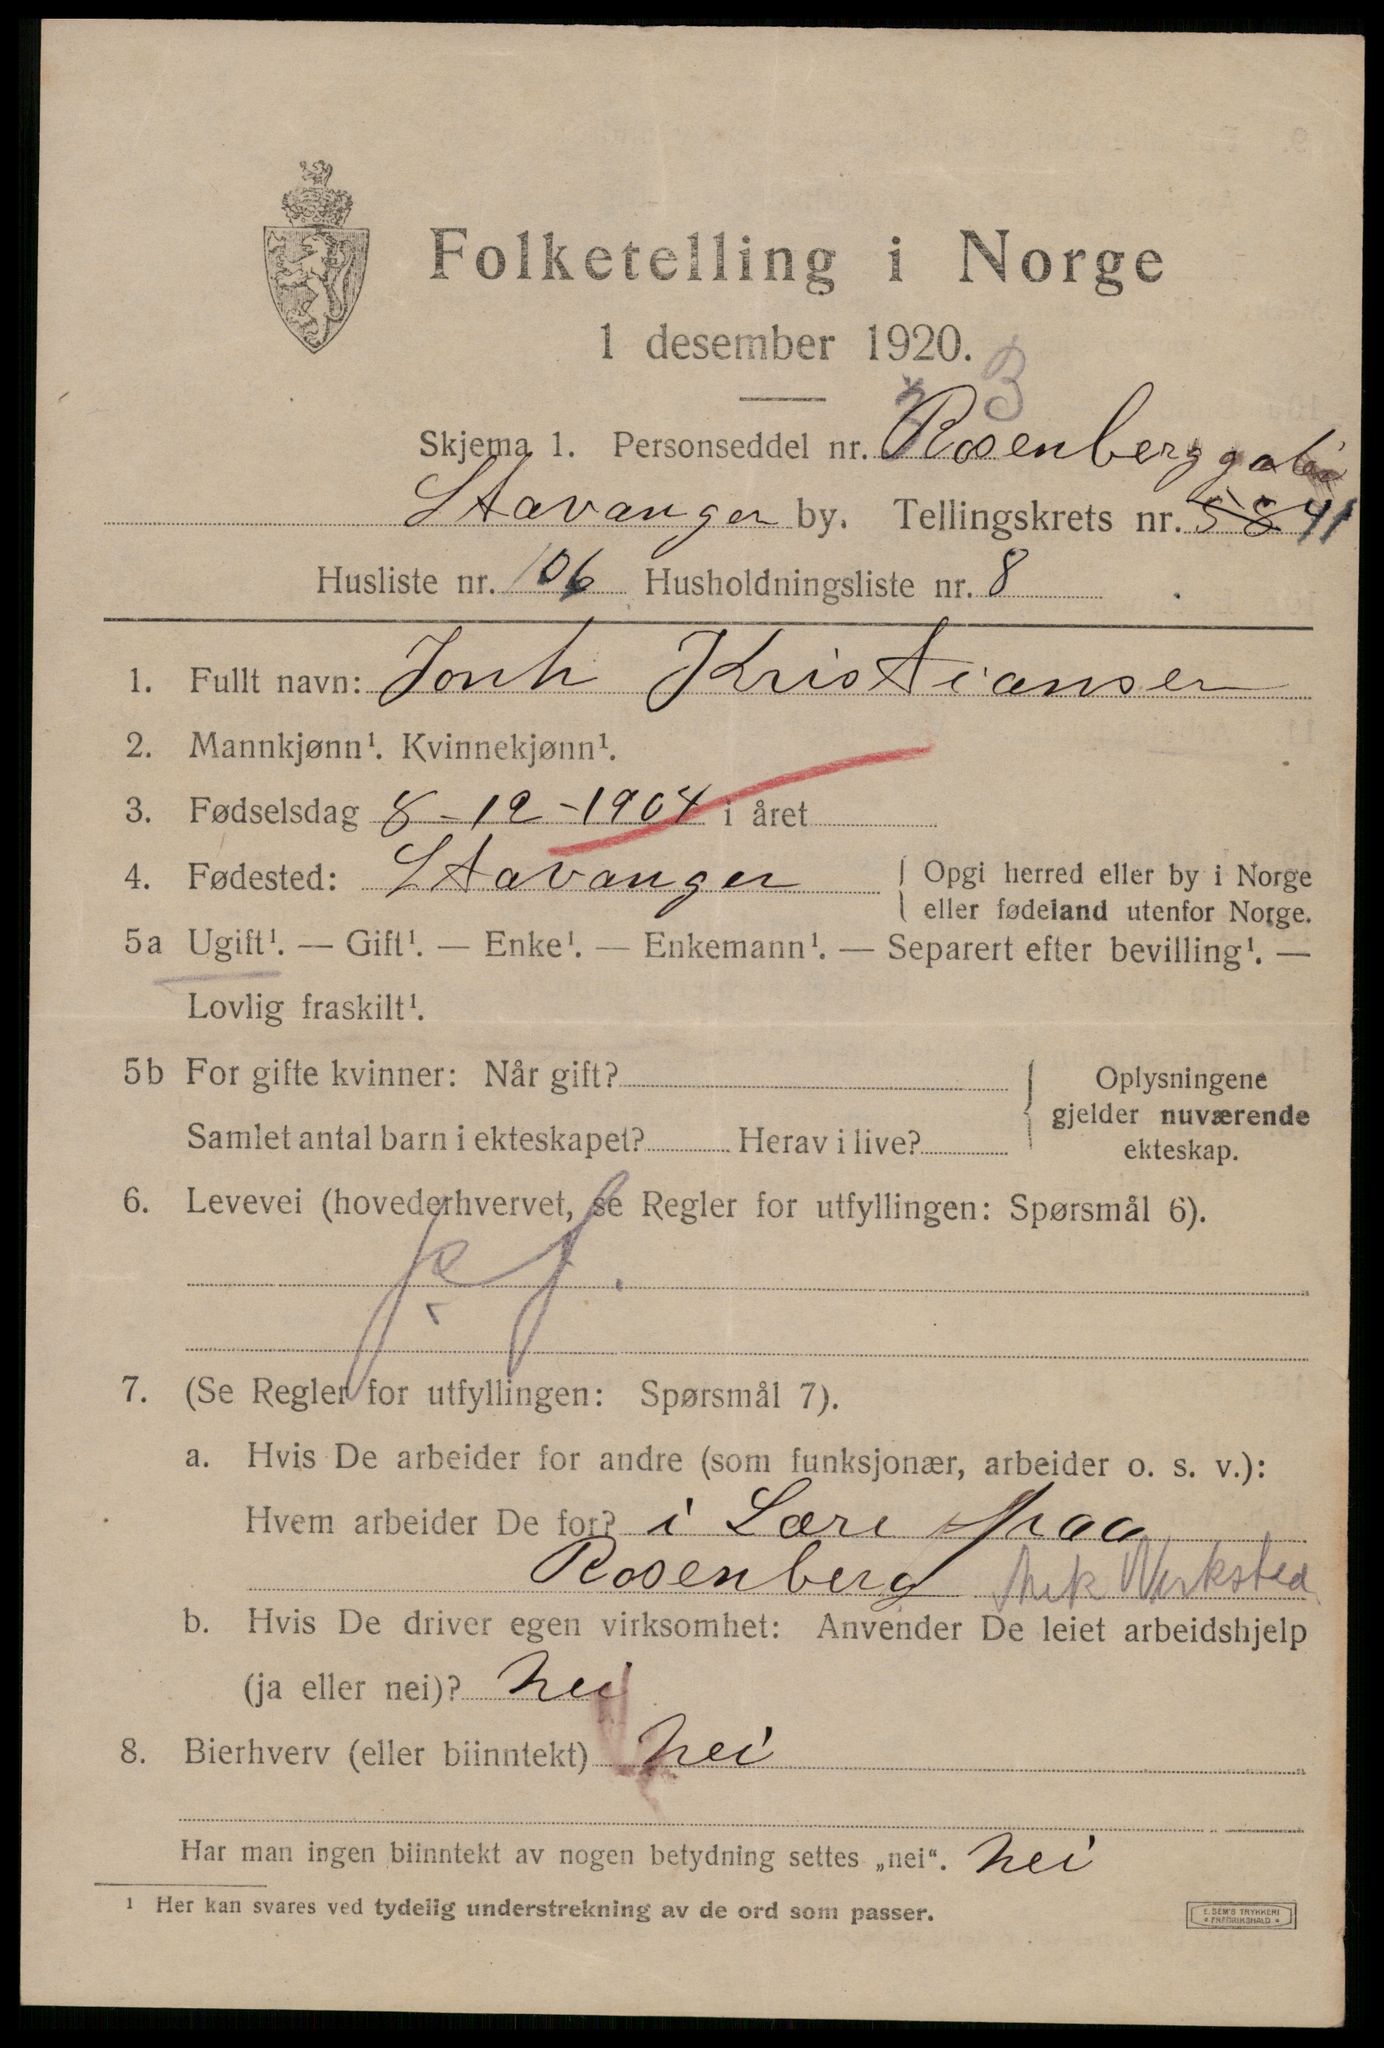 Folketelling i Norge
1 desember 1920.
3
Skjema 1. Personseddel nr. Rosenberggata
Stavanger by. Tellingskrets nr. 58 41
Husliste nr. 106 Husholdningsliste nr. 8
1. Fullt navn: Jonh Kristiansen
2. Mannkjønn¹. Kvinnekjønn¹.
3. Fødselsdag 8-12-1904 i året
4. Fødested: Stavanger { Opgi herred eller by i Norge
eller fødeland utenfor Norge.
5a Ugift¹. — Gift¹. — Enke¹. — Enkemann¹. — Separert efter bevilling¹. —
Lovlig fraskilt¹.
5b For gifte kvinner: Når gift? { Oplysningene
gjelder nuværende
Samlet antal barn i ekteskapet? Herav i live?
ekteskap.
6. Levevei (hovederhvervet, se Regler for utfyllingen: Spørsmål 6).
7. (Se Regler for utfyllingen: Spørsmål 7).
a. Hvis De arbeider for andre (som funksjonær, arbeider o. s. v.):
Hvem arbeider De for? i Lære paa
Rosenberg Mek Verksted
b. Hvis De driver egen virksomhet: Anvender De leiet arbeidshjelp
(ja eller nei)? nei
8. Bierhverv (eller biinntekt) nei
Har man ingen biinntekt av nogen betydning settes „nei“. nei
¹ Her kan svares ved tydelig understrekning av de ord som passer.
E. SEM'S TRYKKERI
* FREDRIKSHALD *